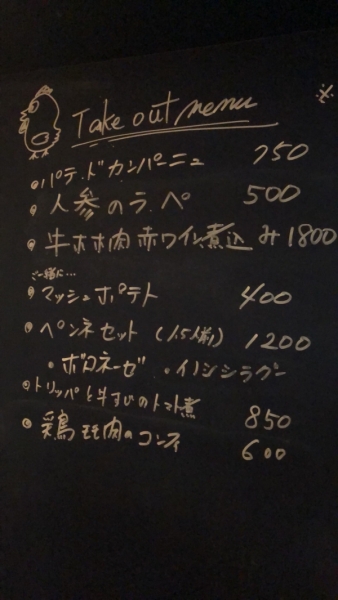 Take out menu ※
パテ.ドカンパーニュ 750
人参のラ.ペ 500
牛ホホ肉赤ワイン煮込み 1800
ご一緒に...
マッシュポテト 400
ペンネセット (1.5人前) 1200
・ボロネーゼ ・イノシシラグー
トリッパと牛すじのトマト煮 850
鶏モモ肉のコンフィ 600